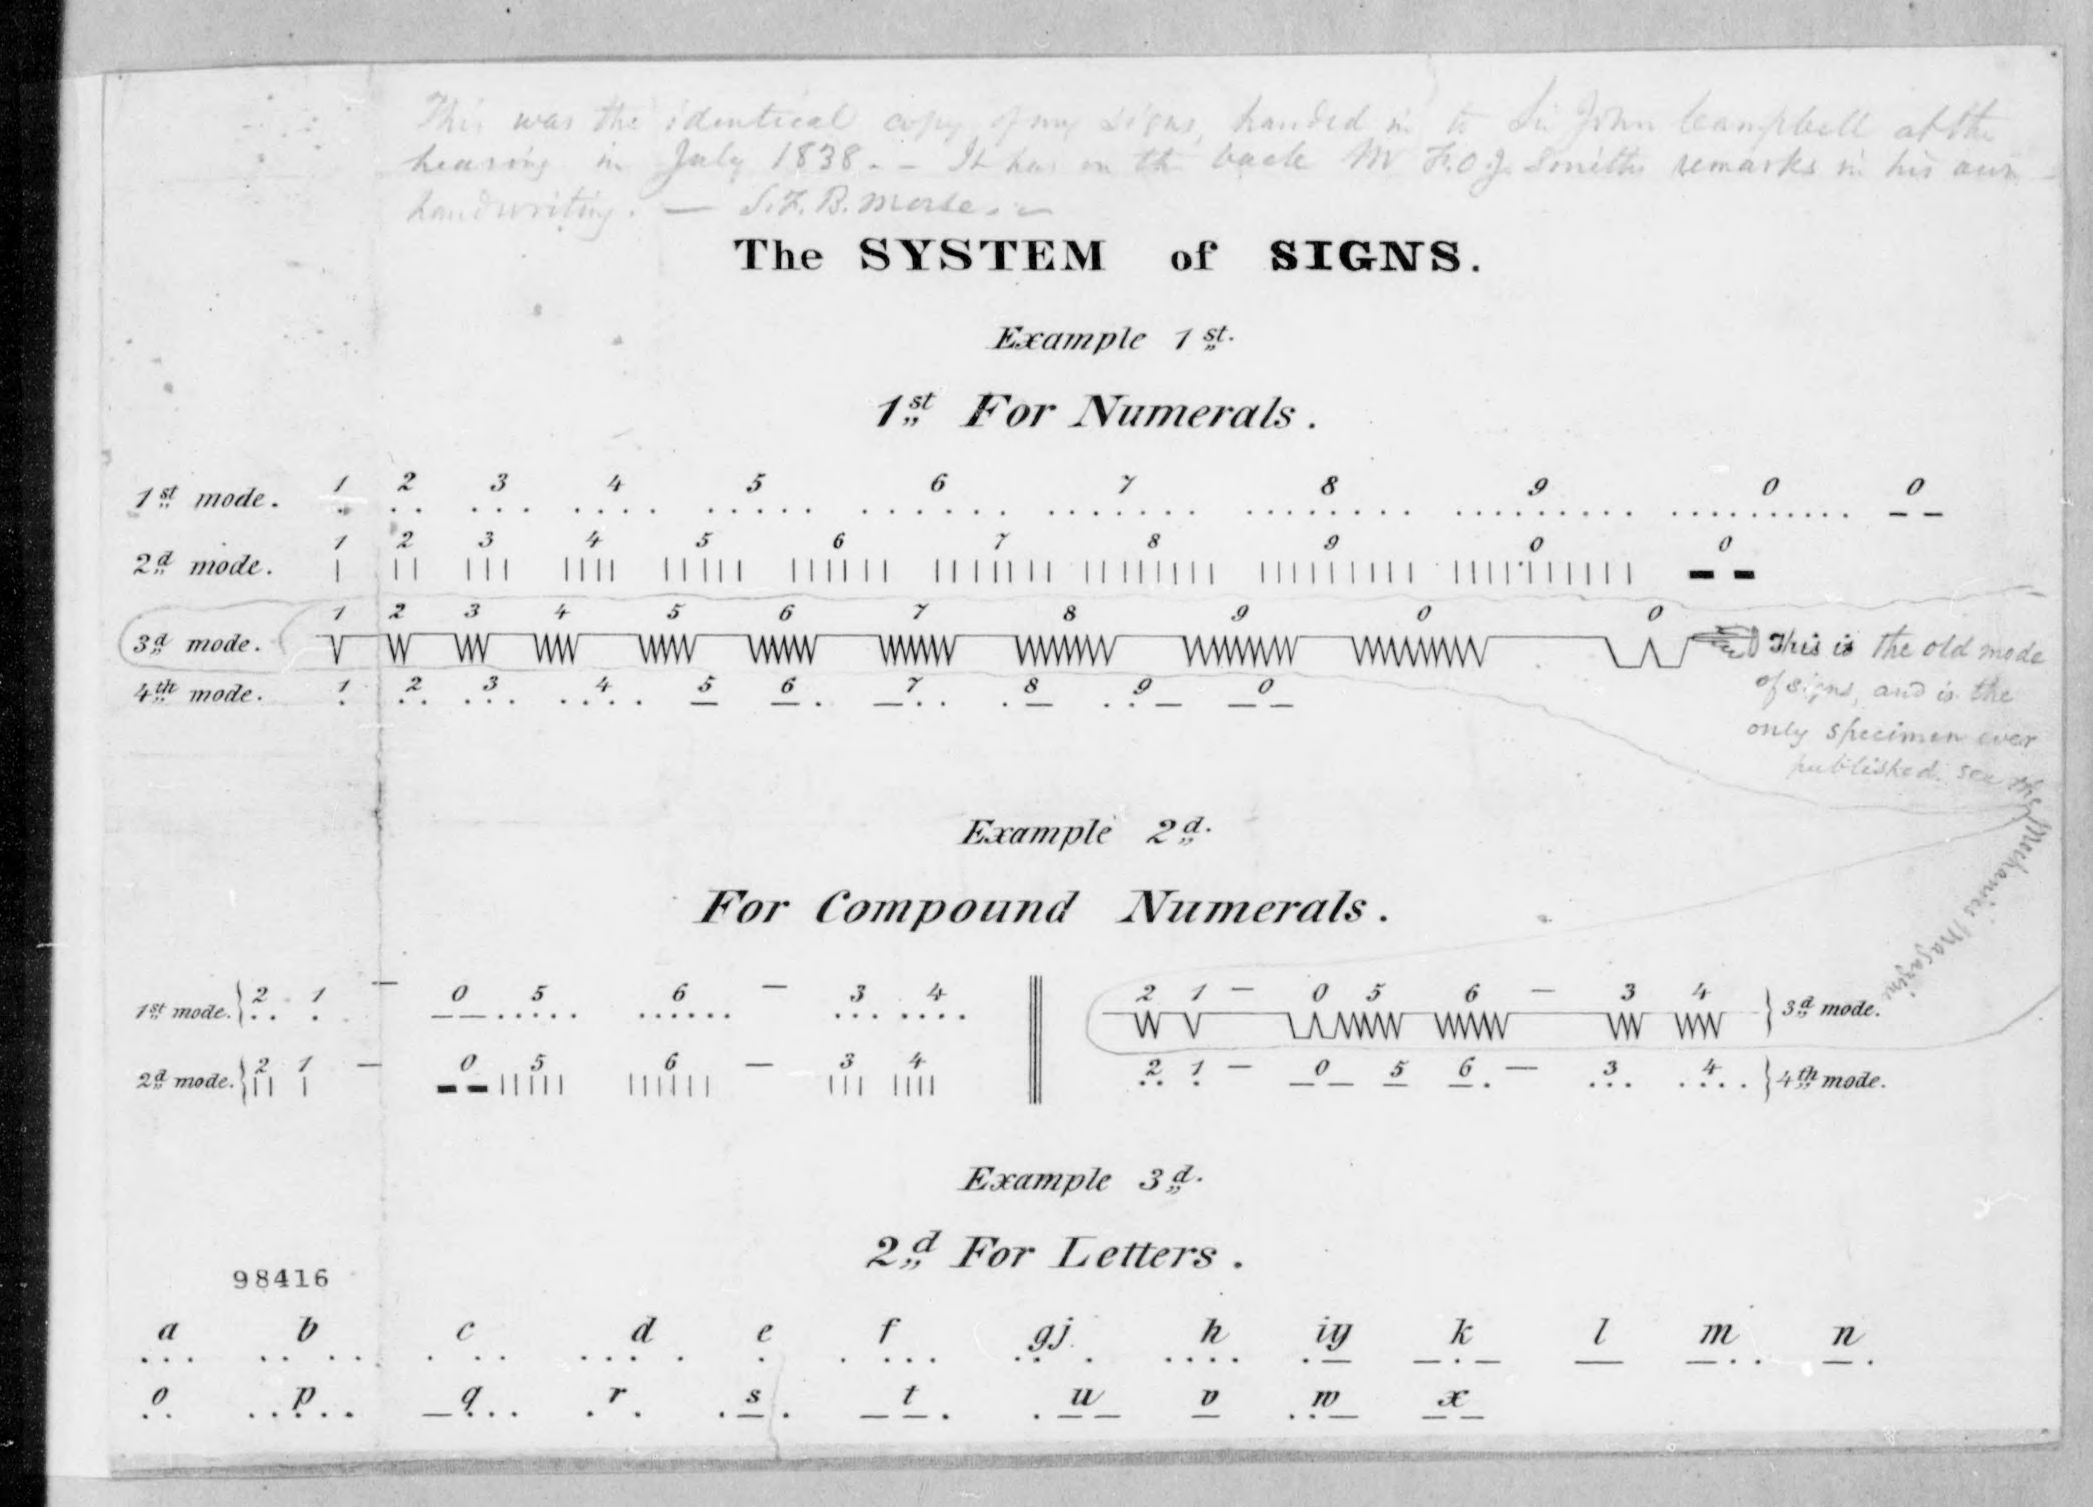 This was the identical copy of my signs, handed in to Sir John Campbell at the
hearing in July 1838. - It has on the back Mr F.O.J. Smith's remarks in his own
handwriting. — S.F.B. Morse.
The SYSTEM of SIGNS.
Example 1st.
1st For Numerals.
1st mode. 1 2 3 4 5 6 7 8 9 0 0
2d mode. 1 2 3 4 5 6 7 8 9 0 0
3d mode. 1 2 3 4 5 6 7 8 9 0 0
This is the old mode
of signs, and is the
only specimen ever
published. see the
Mechanics Magazine
4th mode. 1 2 3 4 5 6 7 8 9 0
Example 2d.
For Compound Numerals.
1st mode. 2 1 — 0 5 6 — 3 4
2d mode. 2 1 — 0 5 6 — 3 4
2 1 — 0 5 6 — 3 4 3d mode.
2 1 — 0 5 6 — 3 4 4th mode.
Example 3d.
2d For Letters.
98416
a b c d e f gj h iy k l m n
o p q r s t u v w x